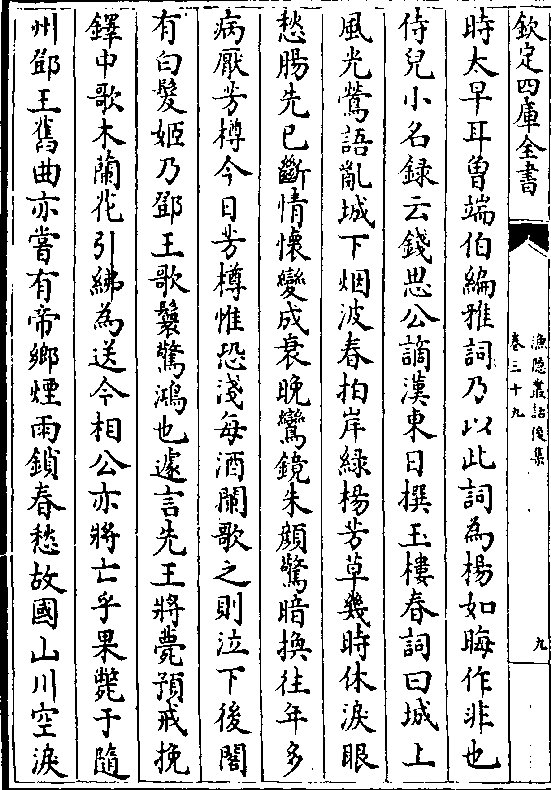 欽定四庫全書
漁隠叢話後集
卷三十九
九
時太早耳曾端伯編雅詞乃以此詞為楊如晦作非也
侍兒小名録云錢思公謫漢東日撰玉樓春詞曰城上
風光鶯語亂城下烟波春拍岸緑楊芳草幾時休淚眼
愁腸先已斷情懷變成衰晚鸞鏡朱顔驚暗換往年多
病厭芳樽今日芳樽惟恐淺每酒闌歌之則泣下後閣
有白髮姬乃鄧王歌鬟驚鴻也遽言先王將薨預戒挽
鐸中歌木蘭花引紼為送今相公亦將亡乎果薨于隨
州鄧王舊曲亦嘗有帝鄉煙雨鎖春愁故國山川空淚